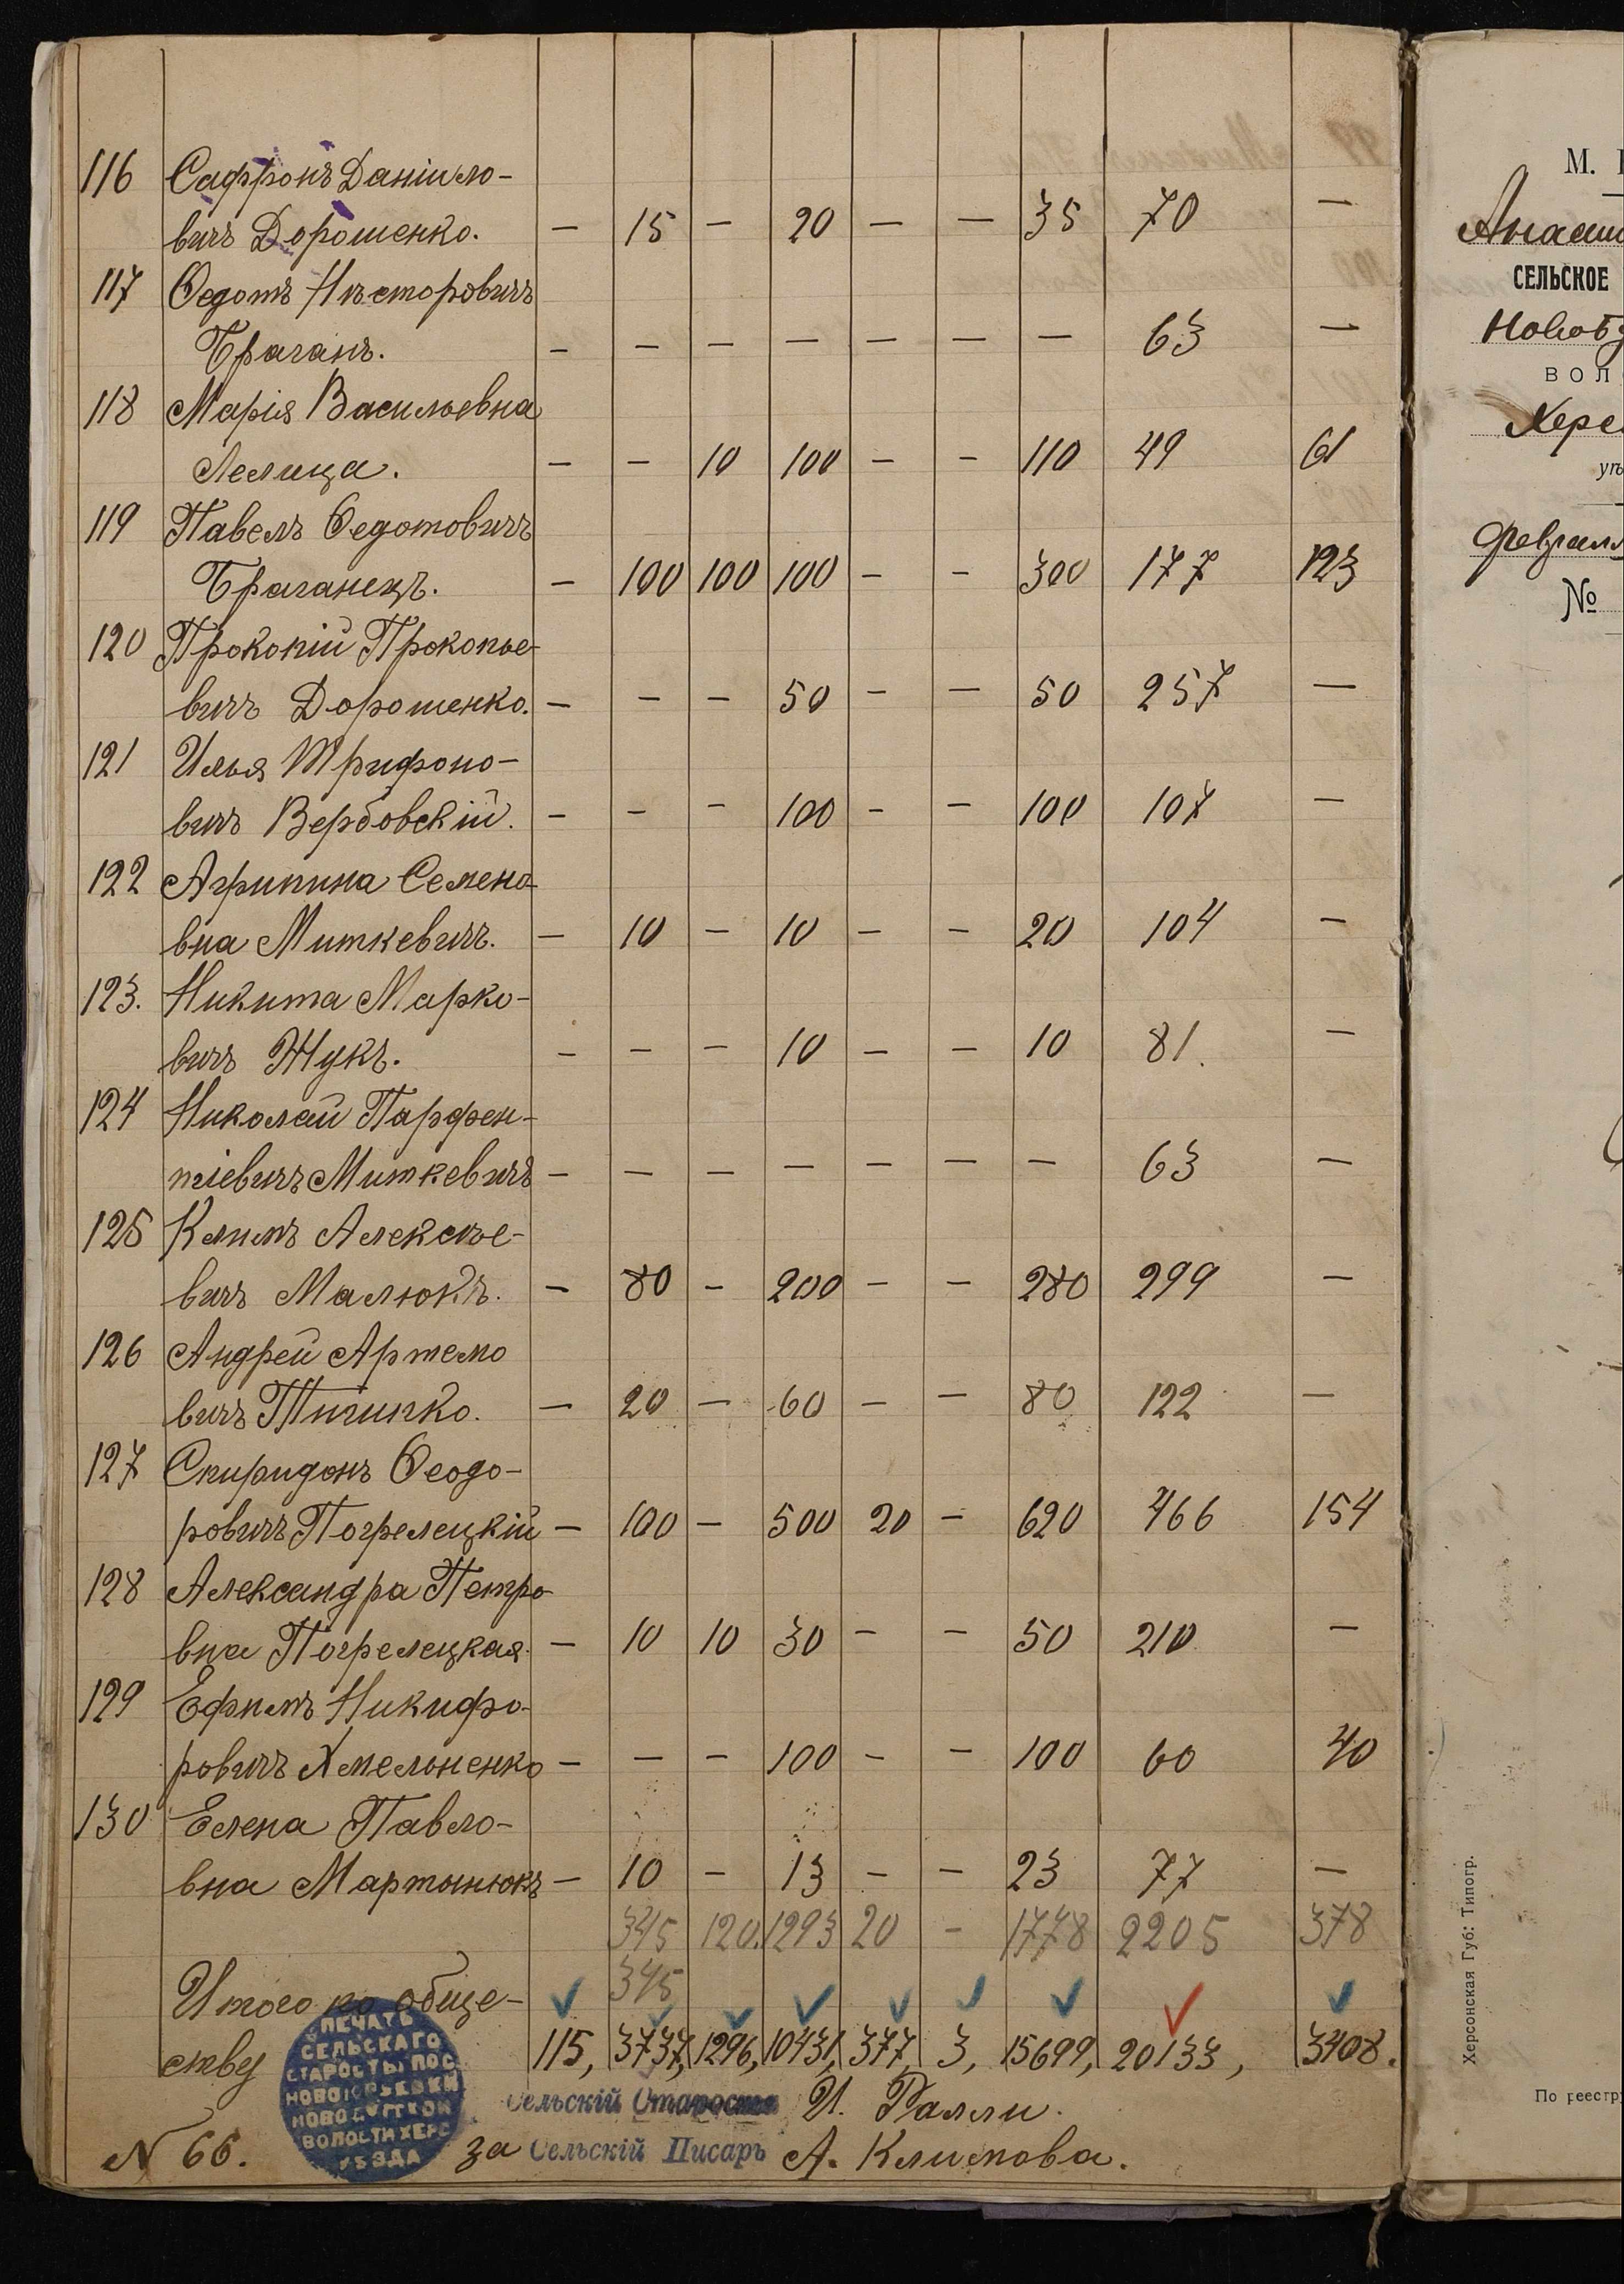 116 Сафронъ Даніило-
вичъ Дорошенко. — 15 — 20 — — 35 70 —
117 Ѳедотъ Нѣсторовичъ
Браганъ. — — — — — — — 63 —
118 Марія Васильевна
Лелица. — — 10 100 — — 110 49 61
119 Павелъ Ѳедотовичъ
Браганецъ. — 100 100 100 — — 300 177 123
120 Прокопій Прокопье-
вичъ Дорошенко. — — — 50 — — 50 257 —
121 Илья Трифоно-
вичъ Вербовскій. — — — 100 — — 100 107 —
122 Агрипина Семено-
вна Миткевичъ. — 10 — 10 — — 20 104 —
123. Никита Марко-
вичъ Жукъ. — — — 10 — — 10 81. —
124 Николай Парфен-
тіевичъ Миткевичъ — — — — — — — 63 —
125 Климъ Алексѣе-
вичъ Малюкъ. — 80 — 200 — — 280 299 —
126 Андрей Артемо
вичъ — 20 — 60 — — 80 122 —
127 Спиридонъ Ѳеодо-
ровичъ Погрелецкій — 100 — 500 20 — 620 466 154
128 Александра Петро-
вна Погрелецкая. — 10 10 30 — — 50 210 —
129 Ефимъ Никифо-
ровичъ Хмельненко — — — 100 — — 100 60 40
130 Елена Павло-
вна Мартынюкъ — 10 — 13 — — 23 77 —
345 120. 1293 20 — 1778 2205 378
345
Итого по обще-
ству 115, 3737, 1296, 10431, 377, 3, 15699, 20133, 3408.
ПЕЧАТЬ
СЕЛЬСКАГО
СТАРОСТЫ ПОС.
НОВОЮРЬЕВКИ
НОВОБУГСКОЙ
ВОЛОСТИ ХЕРС
УѢЗДА
Сельскій Староста И. Ралли.
N 66. за Сельскій Писарь А. Климова.
М.
СЕЛЬСКОЕ
Новобу
ВОЛ
Херс
уѣ
Феврал
№
Херсонская Губ: Типогр.
По реестр